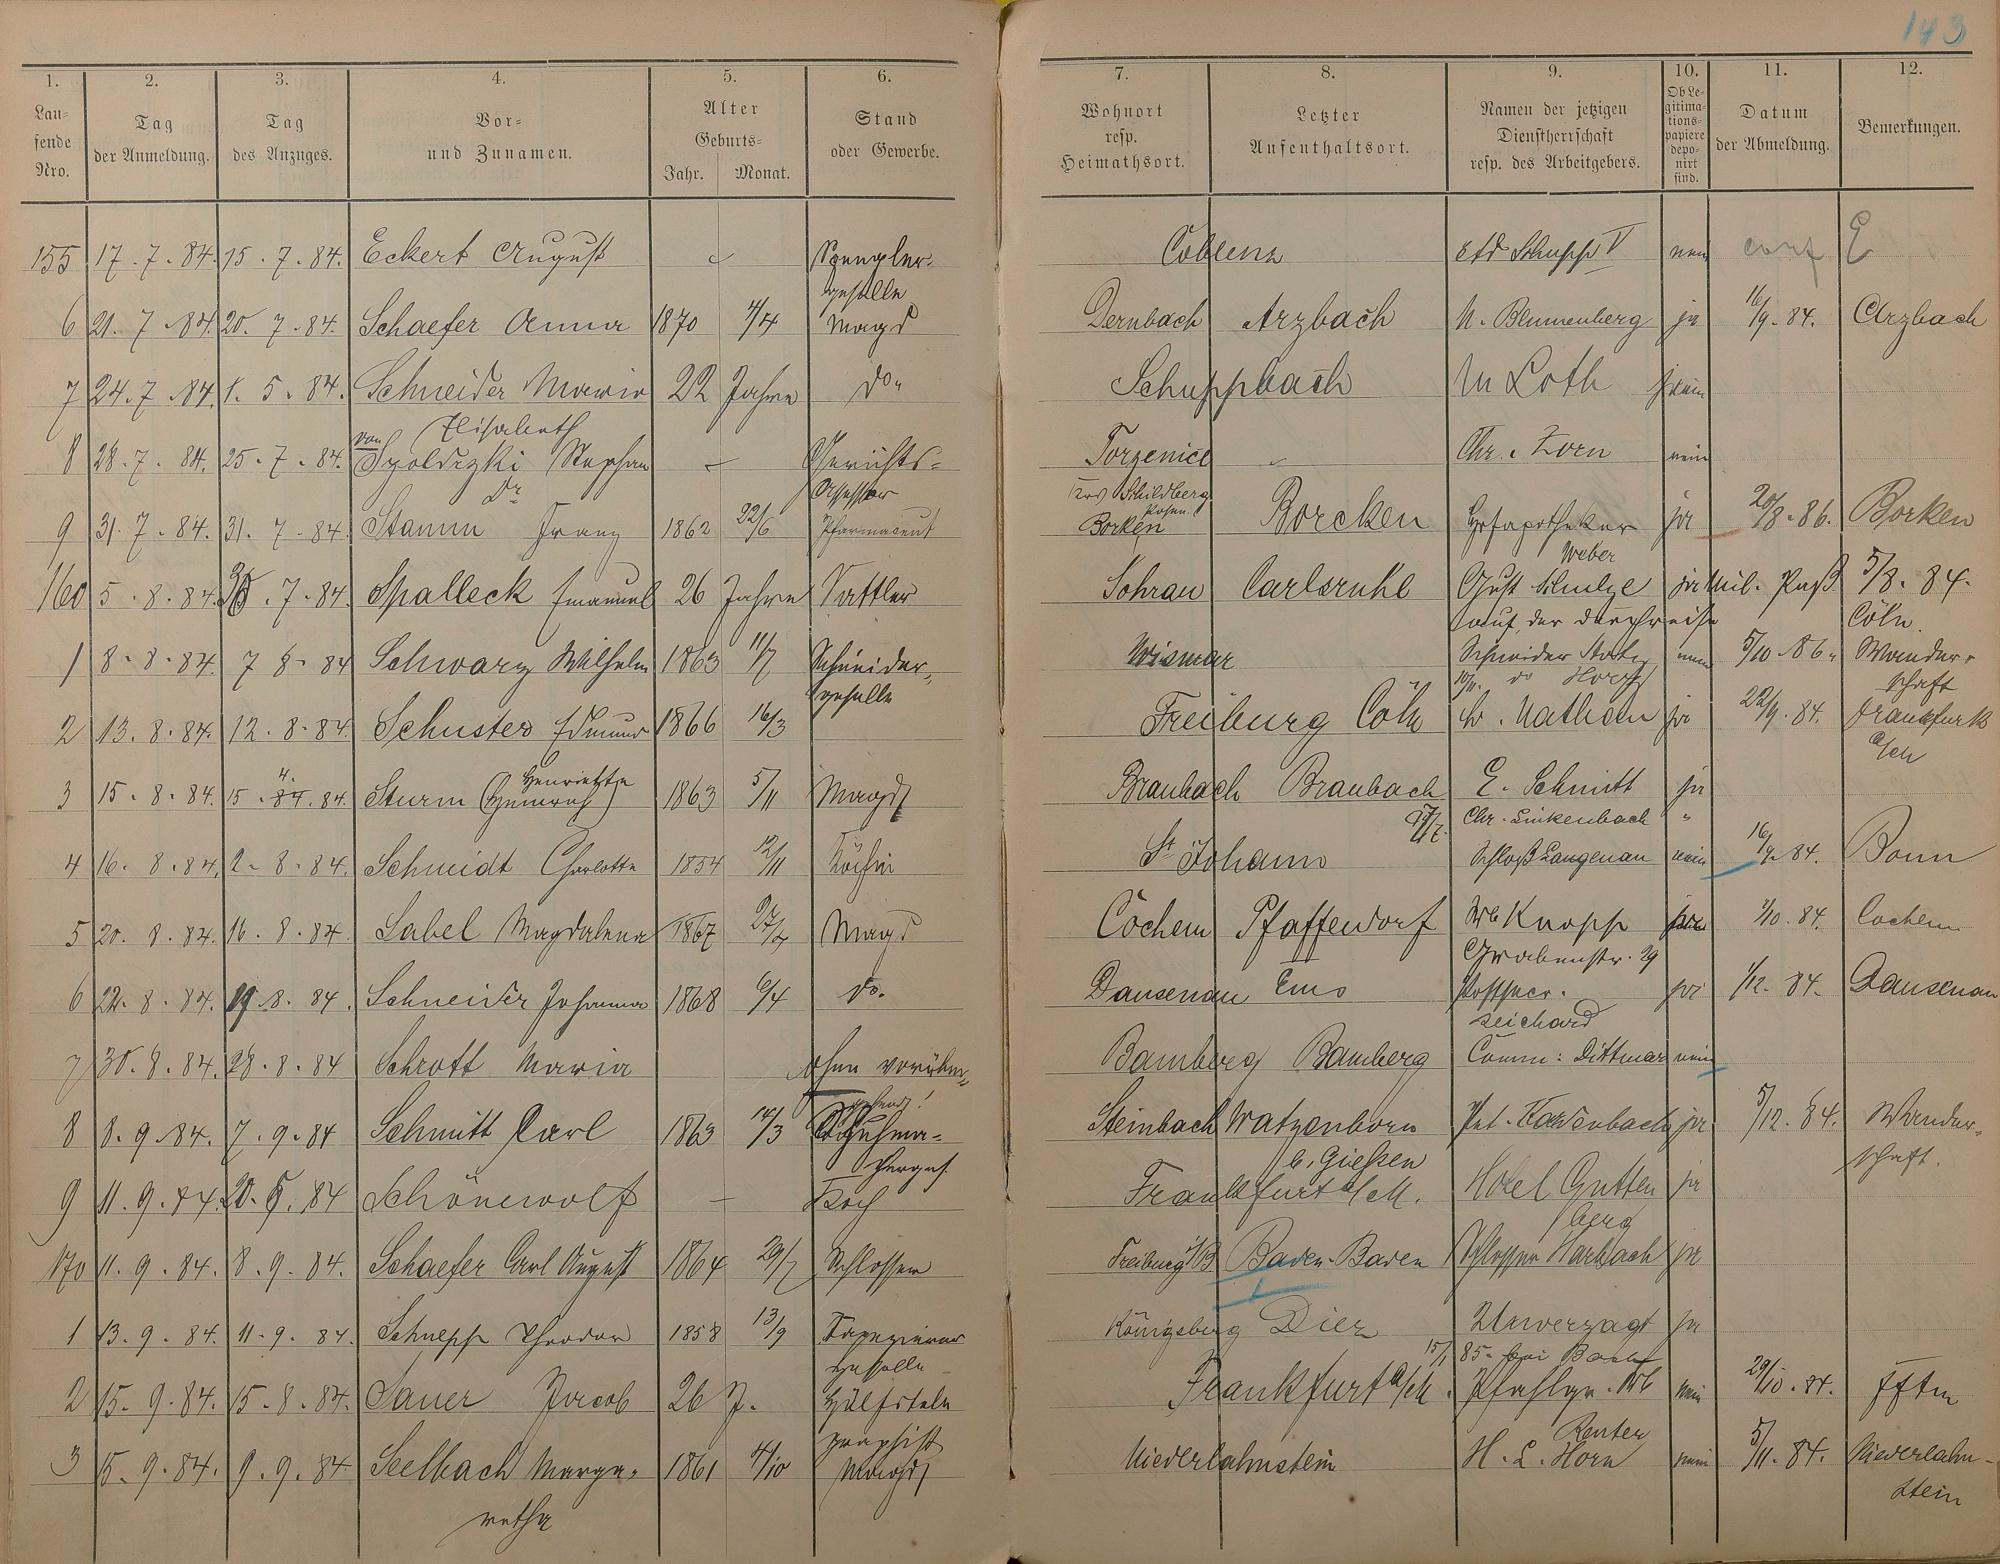 143
1. 2. 3. 4. 5. 6. 7. 8. 9. 10. 11. 12.
Lau-
fende
Nro.
Tag
der Anmeldung.
Tag
des Anzuges.
Vor-
und Zunamen.
Alter
Geburts-
Jahr. Monat.
Stand
oder Gewerbe.
Wohnort
resp.
Heimathsort.
Letzter
Aufenthaltsort.
Namen der jetzigen
Dienstherrschaft
resp. des Arbeitgebers.
Ob Le-
gitima-
tions-
papiere
depo-
nirt
sind.
Datum
der Abmeldung.
Bemerkungen.
155 17. 7. 84. 15. 7. 84. Eckert August Spengler- Coblenz Schupp V nein conf E
geselle
6 21. 7. 84. 20. 7. 84. Schaefer Anna 1870 4/4 Magd Dernbach Arzbach N. Blumenberg ja 16/9. 84. Arzbach
7 24. 7. 84. 1. 5. 84. Schneider Maria 22 Jahre do. Schuppbach M Loth nein
Elisabeth
8 28. 7. 84. 25. 7. 84. von Stephan Gerichts- Torzenice Chr. Zorn nein
Dr Assessor Schildberg
Posen.
9 31. 7. 84. 31. 7. 84. Stamm Franz 1862 22/6 Pharmaceut Borken Borcken Hofapotheker ja 20/8. 86. Borken
Weber
160 5. 8. 84. 7. 84. Spalleck Emanuel 26 Jahre Sattler Sohrau Carlsruhe Gust Schulze ja Mil. Paß 5/8. 84.
auf der Durchreise Cöln.
1 8. 8. 84. 7 8. 84 Schwarz Wilhelm 1863 11/7 Schneider- Wismar Schneider nein 5/10. 86. Wander-
geselle schaft
2 13. 8. 84. 12. 8. 84. Schuster Edmund 1866 16/3 Freiburg Cöln Nathan ja 22/9. 84. Frankfurt
a/M
Henriette
3 15. 8. 84. 15. 4. 84. Sturm (Heinrich) 1863 5/11 Magd Braubach Braubach E. Schmitt ja
Chr. Linkenbach "
4 16. 8. 84. 2. 8. 84. Schmidt Charlotte 1854 12/11 Köchin St Johann Schloß Langenau nein 16/9. 84. Bonn
5 20. 8. 84. 16. 8. 84. Sabel Magdalena 1867 Magd Cochem Pfaffendorf Wb Knopp 84. Cochem
Grabenstr. 29
6 22. 8. 84. 19. 8. 84. Schneider Johanna 1868 6/4 do. Dausenau Ems Postsecr. ja 1/12. 84. Dausenau
Reichard
7 30. 8. 84. 28. 8. 84 Schrott Maria ohne vorüber- Bamberg Bamberg Comm: Dittmar nein
gehend!
8 8. 9. 84. 7. 9. 84 Schmitt Carl 1863 14/3 Schuhma- Steinbach Watzenborn Pet. Kadenbach ja 5/12. 84. Wander-
cherges. b. Gießen schaft.
9 11. 9. 84. 84 Schönewolf Koch Frankfurt a/M. Hotel Gutten ja
berg
170 11. 9. 84. 8. 9. 84. Schaefer Carl August 1864 29/7 Schlosser Freiburg i/B Baden-Baden Schlosser Harbach ja
1 13. 9. 84. 11. 9. 84. Schnepp Theodor 1858 13/9 Tapezierer Königsberg Diez Unverzagt ja
geselle 15/1 85. bei
2 15. 9. 84. 15. 8. 84. Sauer Jacob 26 J. Hülfstele Frankfurt a/M. Pfahlgr. Wb nein 29/10. 84. Fftm
graphist Reuter
3 15. 9. 84. 9. 9. 84 Seelbach Marga- 1861 4/10 Magd Niederlahnstein H. L. Horn nein 5/11. 84. Niederlahn-
retha stein